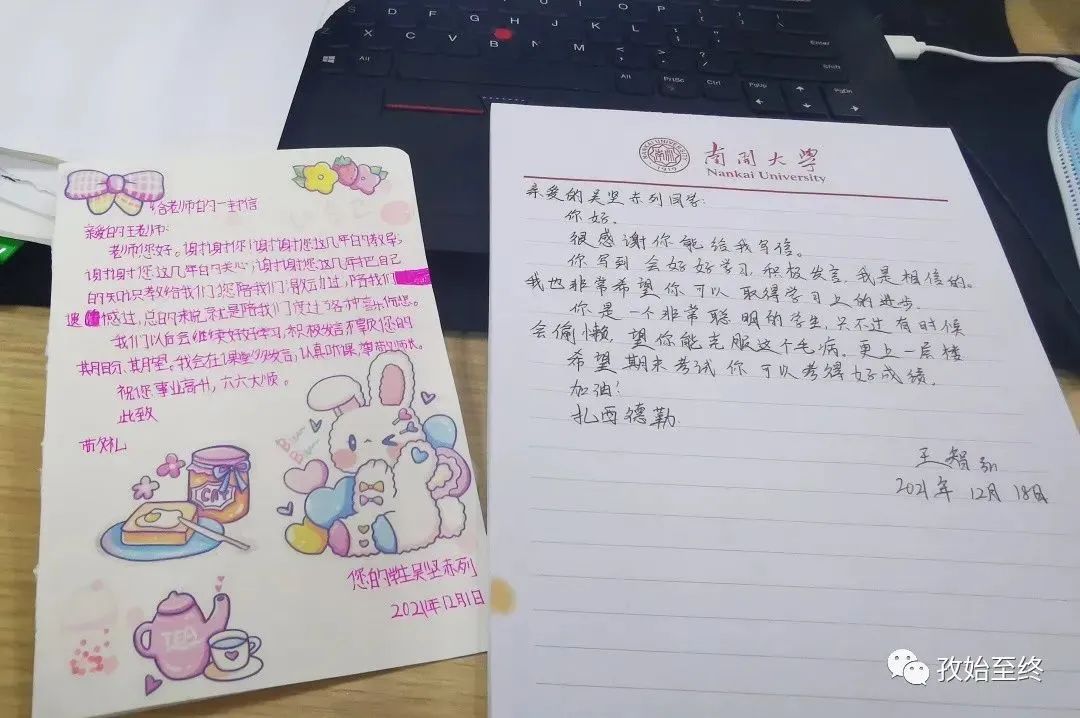 给老师的一封信
亲爱的王老师:
老师您好。谢谢您!谢谢您这几年的教学,
谢谢您这几年的关心,谢谢您这几年把自己
的知识教给我们。您陪我们激动过,陪我们
遗憾过,总的来说就是陪我们度过了各种喜怒
我们以后会继续好好学习,积极发言不辜负您的
期盼、期望。我会在课堂多发言,认真听课
祝您事业高升,六六大顺。
此致
敬礼
您的学生吴坚赤列
2021年12月1日
CAT
TEA
南開大學
Nankai University
NANKAI UNIVERSITY
1919
亲爱的吴坚赤列同学:
你好.
很感谢你能给我写信。
你写到会好好学习,积极发言,我是相信的。
我也非常希望你可以取得学习上的进步.
你是一个非常聪明的学生,只不过有时候
会偷懒,望你能克服这个毛病.更上一层楼
希望期末考试你可以考得好成绩.
加油!
扎西德勒.
王智弘
2021年12月18日
S D F G H J K L
Z X C V B N M
Enter
Shift
Alt
Alt PrtSc Ctrl PgUp PgDn
孜始至终